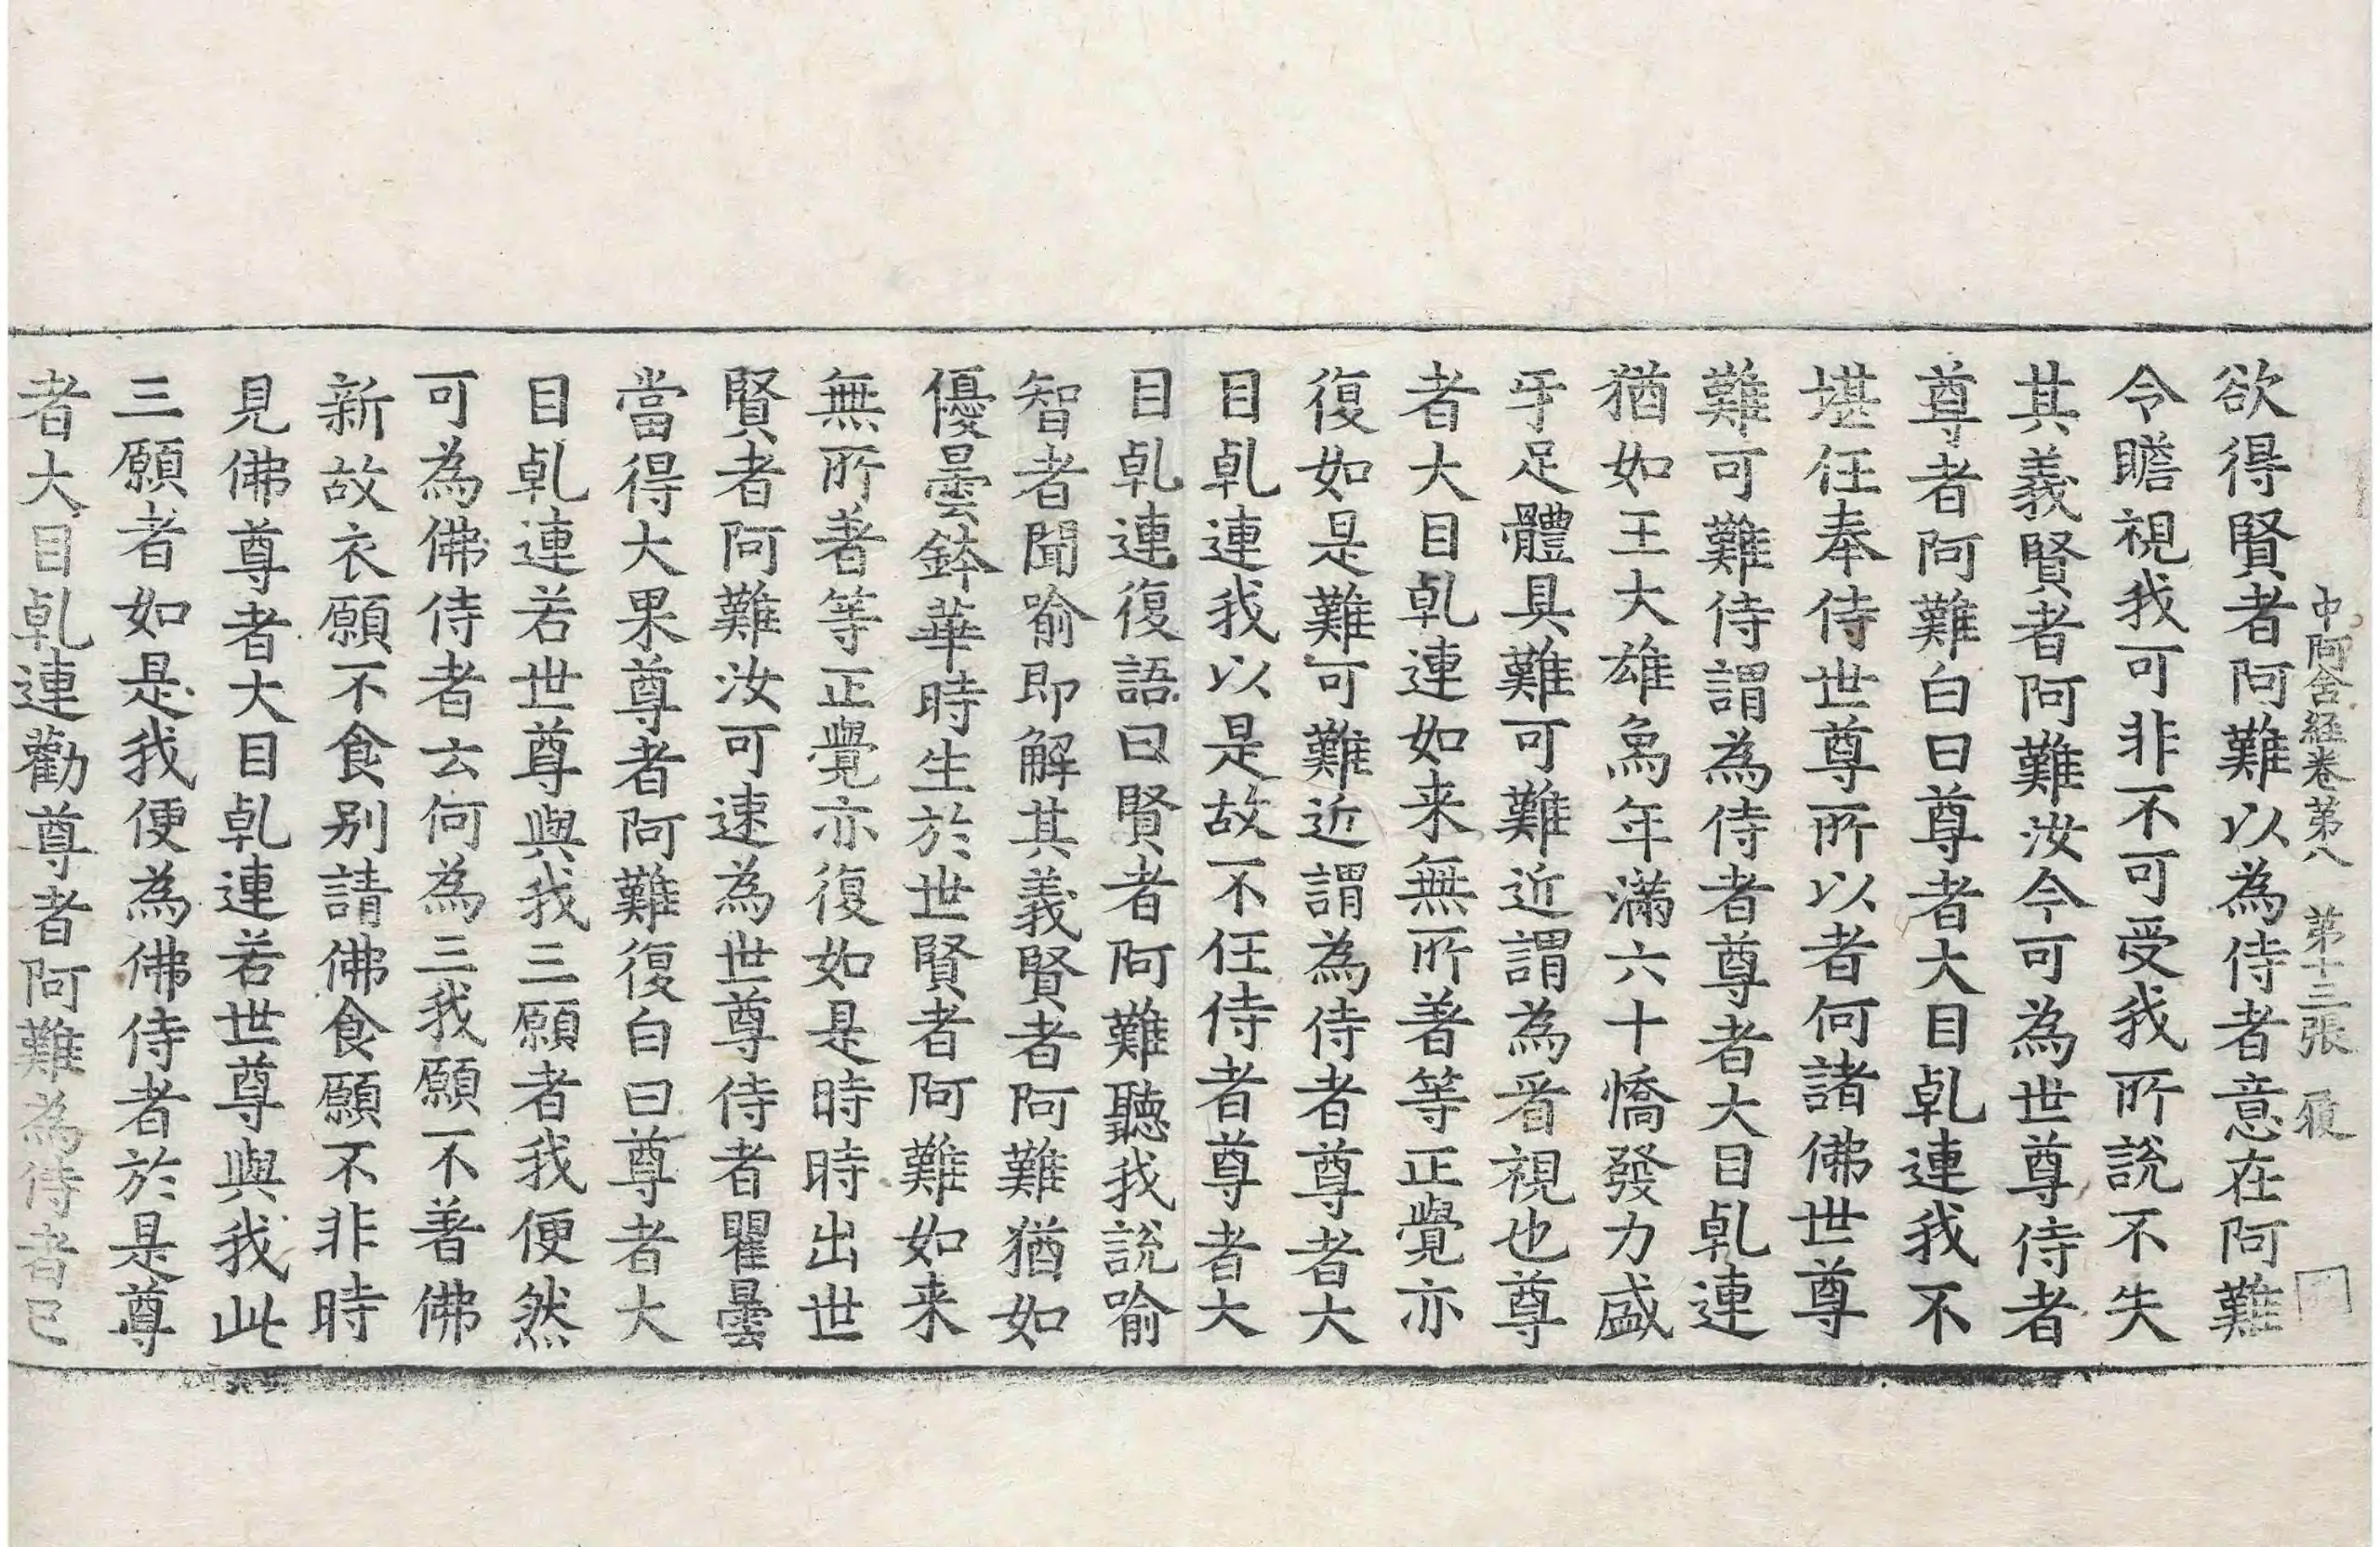 中阿含經卷第八 第十三張 履
欲得賢者阿難以為侍者意在阿難
令瞻視我可非不可受我所說不失
其義賢者阿難汝今可為世尊侍者
尊者阿難白曰尊者大目乹連我不
堪任奉侍世尊所以者何諸佛世尊
難可難侍謂為侍者尊者大目乹連
猶如王大雄烏年滿六十憍發力盛
牙足體具難可難近謂為看視也尊
者大目乹連如来無所著等正覺亦
復如是難可難近謂為侍者尊者大
目乹連我以是故不任侍者尊者大
目乹連復語曰賢者阿難聽我說喻
智者聞喻即解其義賢者阿難猶如
優曇鉢華時生於世賢者阿難如来
無所著等正覺亦復如是時時出世
賢者阿難汝可速為世尊侍者瞿曇
當得大果尊者阿難復白曰尊者大
目乹連若世尊與我三願者我便然
可為佛侍者云何為三我願不著佛
新故衣願不食別請佛食願不非時
見佛尊者大目乹連若世尊與我此
三願者如是我便為佛侍者於是尊
者大目乹連勸尊者阿難為侍者已